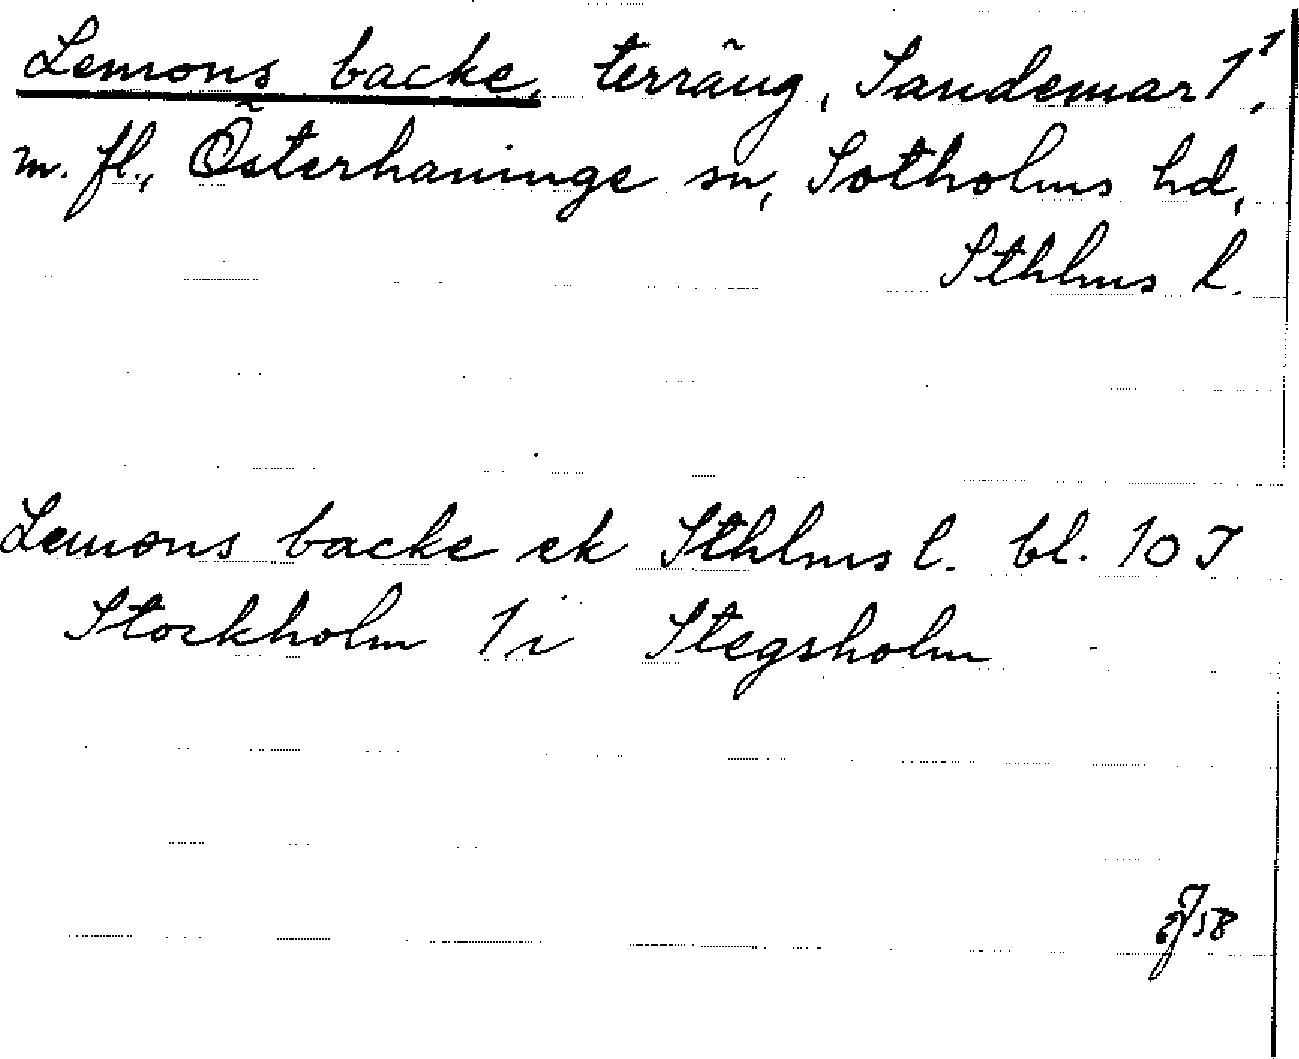 Lemons backe, terräng, Sandemar 1¹,
m. fl., Österhaninge sn, Sotholms hd,
Sthlms l.
Lemons backe ek Sthlms l. bl. 10 J
Stockholm 1 i Stegsholm
58